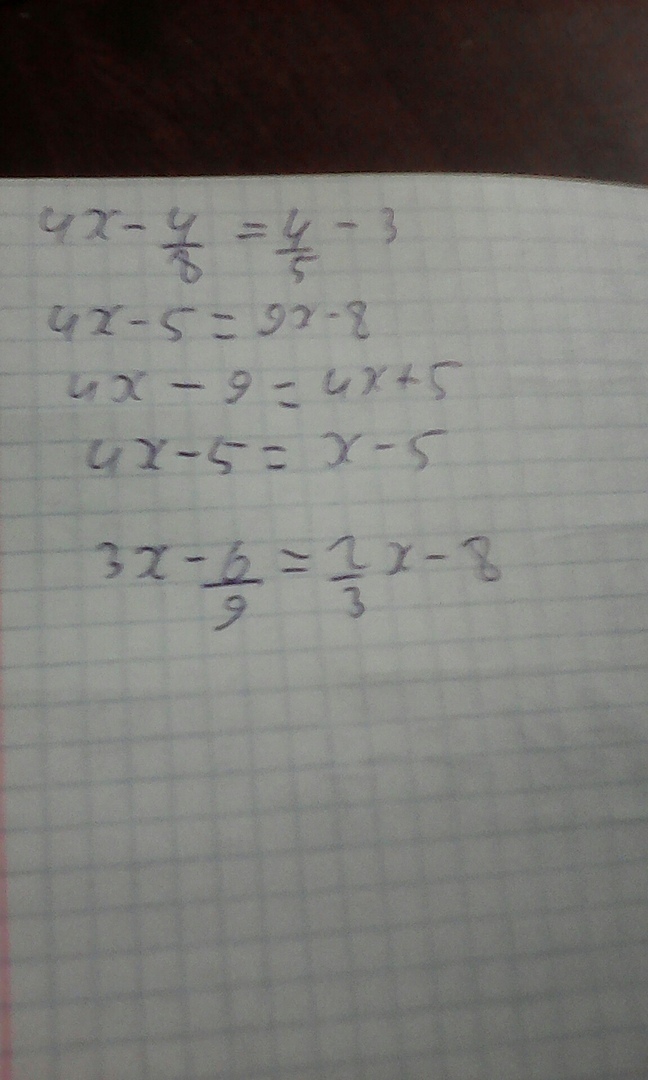 4x - 4/8 = 4/5 - 3
4x - 5 = 9x - 8
4x - 9 = 4x + 5
4x - 5 = x - 5
3x - 6/9 = 2/3 x - 8